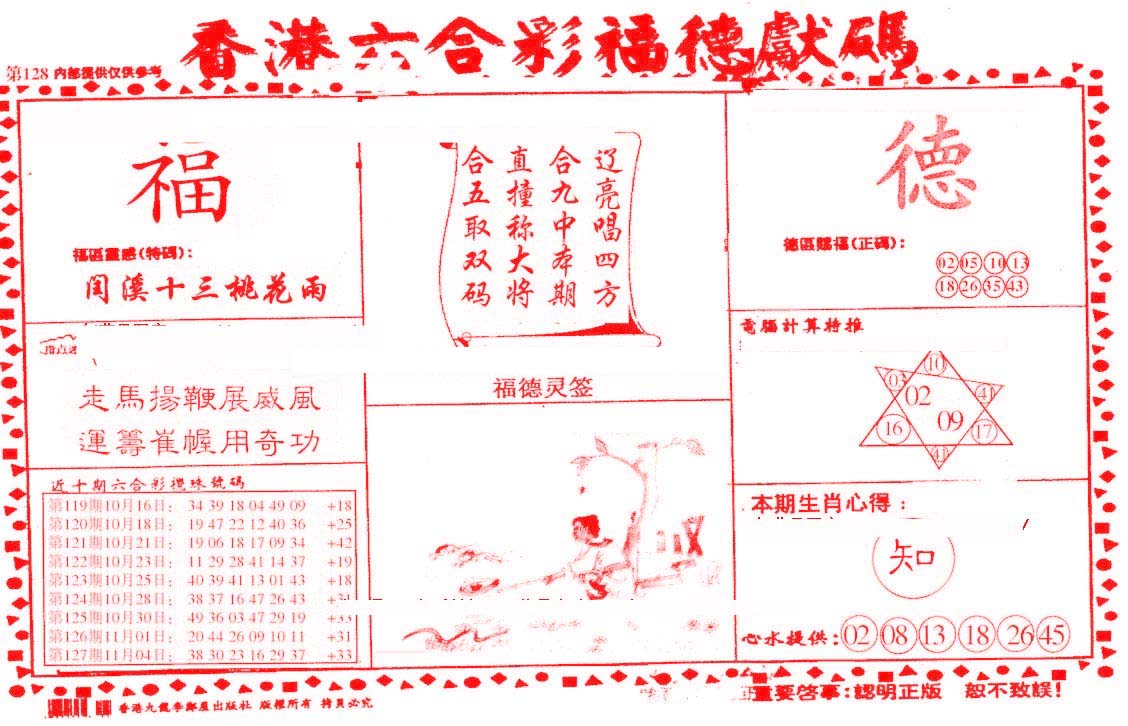 香港六合彩福德獻碼
第128 内部提供仅供參考
福
福區靈感(特碼):
閏溪十三桃花雨
走馬揚鞭展威風
運籌崔幄用奇功
近十期六合彩攪珠號碼
第119期10月16日: 34 39 18 04 49 09 +18
第120期10月18日: 19 47 22 12 40 36 +25
第121期10月21日: 19 06 18 17 09 34 +42
第122期10月23日: 11 29 28 41 14 37 +19
第123期10月25日: 40 39 41 13 01 43 +18
第124期10月28日: 38 37 16 47 26 43
第125期10月30日: 49 36 03 47 29 19 +33
第126期11月01日: 20 44 26 09 10 11 +31
第127期11月04日: 38 30 23 16 29 37 +33
辽亮唱四方
合九中本期
直撞称大将
合五取双码
福德灵签
德
德區賜福(正碼):
02 05 10 13
18 26 35 43
電腦計算特推
10
03 02 41
16 09 17
41
本期生肖心得:
知
心水提供: 02 08 13 18 26 45
香港九龍李鄭屋出版社 版權所有 拷貝必究
重要啓事:認明正版 恕不致誤!